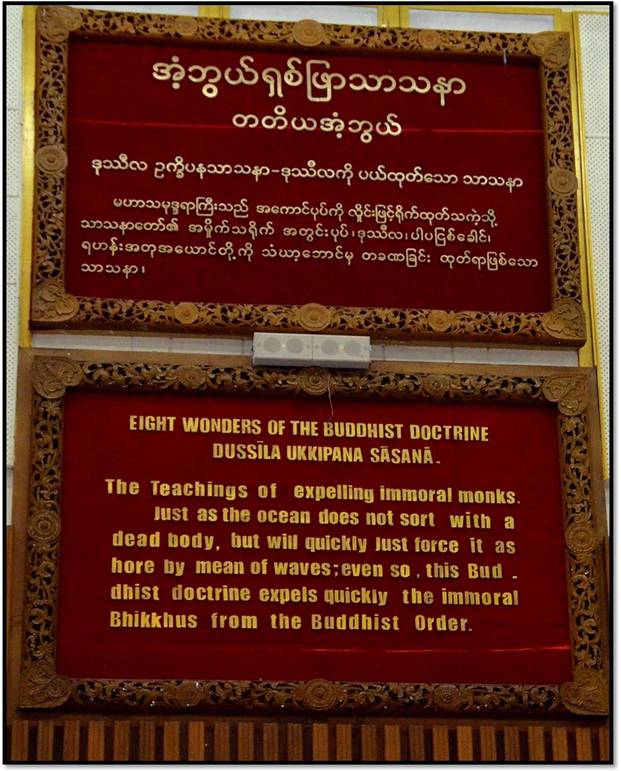 အံ့ဘွယ်ရှစ်ဖြာသာသနာ
တတိယအံ့ဘွယ်
ဒုဿီလ ဥက္ခိပနသာသနာ-ဒုဿီလကို ပယ်ထုတ်သော သာသနာ
မဟာသမုဒ္ဒရာကြီးသည် အကောင်ပုပ်ကို လှိုင်းဖြင့်ရိုက်ထုတ်သကဲ့သို့
သာသနာတော်၏ အမှိုက်သရိုက် အတွင်းပုပ်၊ဒုဿီလ၊ပါပငြစ်ခေါင်၊
ရဟန်းအတုအယောင်တို့ကို သံဃာ့ဘောင်မှ တခဏခြင်း ထုတ်ရာဖြစ်သော
သာသနာ၊
EIGHT WONDERS OF THE BUDDHIST DOCTRINE
DUSSĪLA UKKIPANA SĀSANĀ.
The Teachings of expelling immoral monks.
Just as the ocean does not sort with a
dead body, but will quickly Just force it as
hore by mean of waves;even so, this Bud -
dhist doctrine expels quickly the immoral
Bhikkhus from the Buddhist Order.